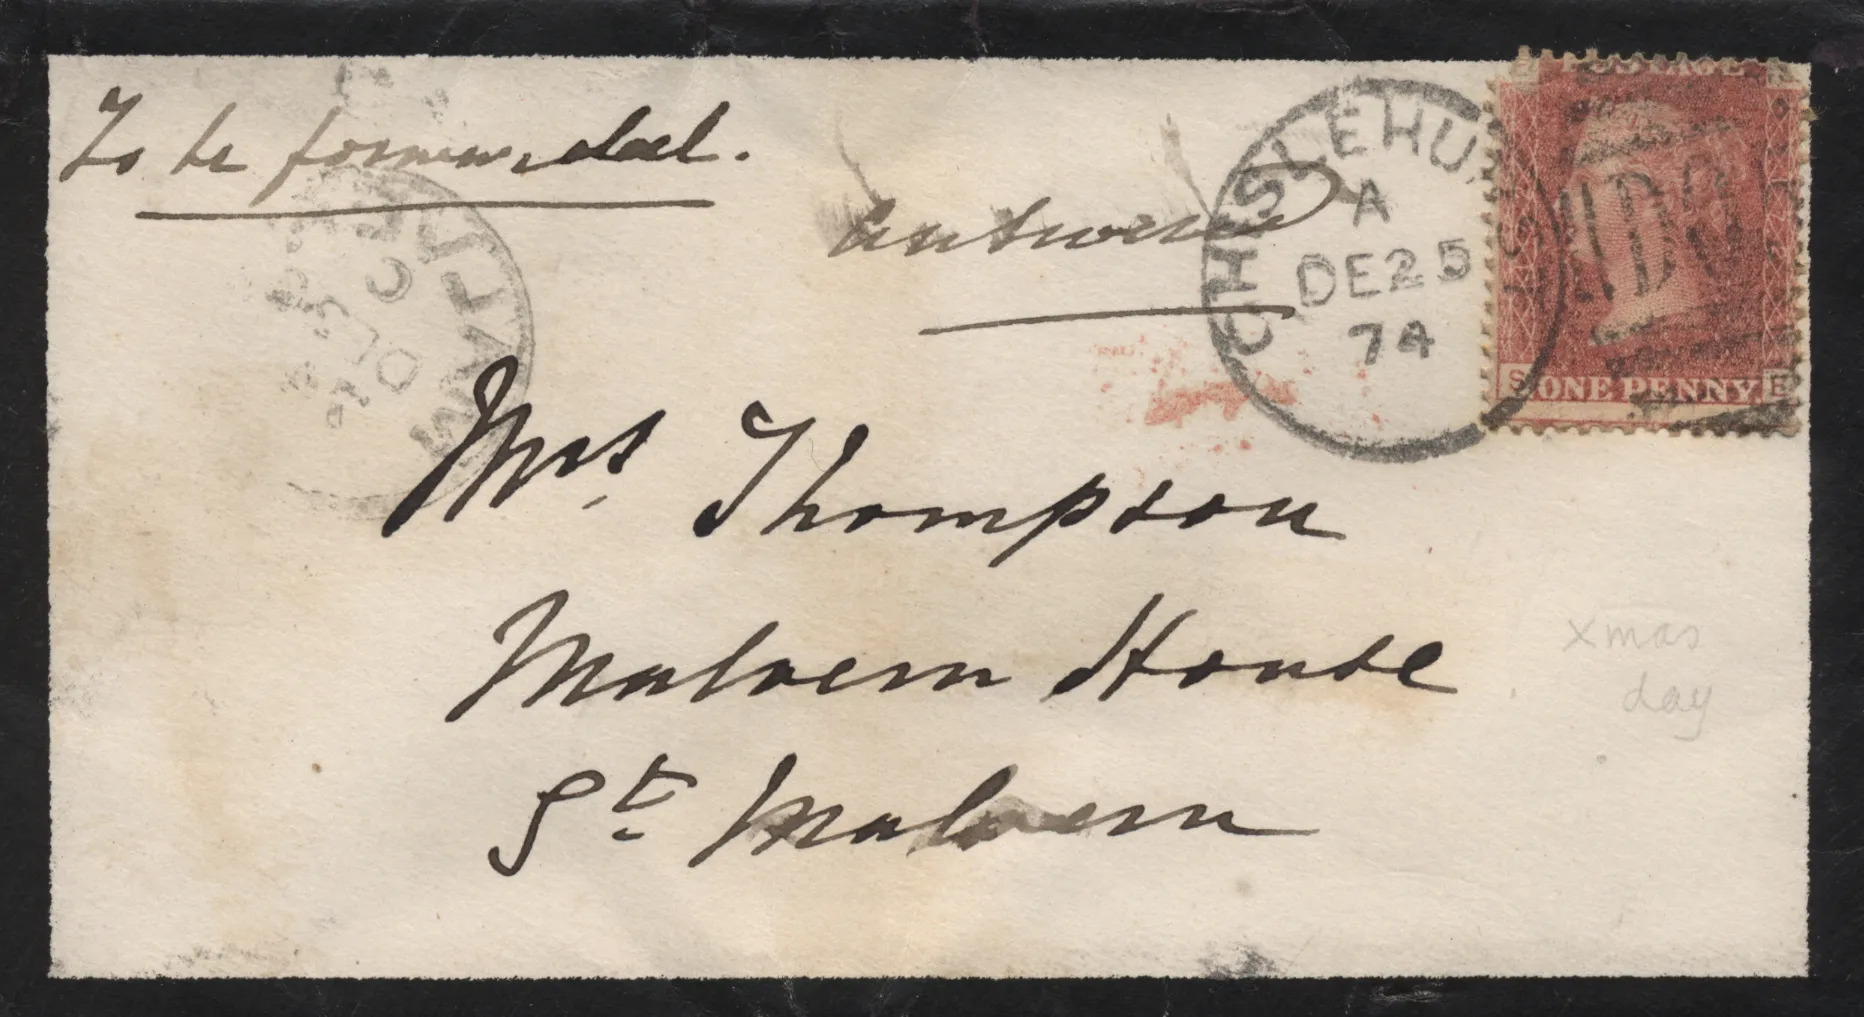 To be forwarded.
Answered
CHISLEHURST
A
DE 25
74
POSTAGE
S ONE PENNY E
Mrs Thompson
Malvern House
Gt. Malvern
xmas
day